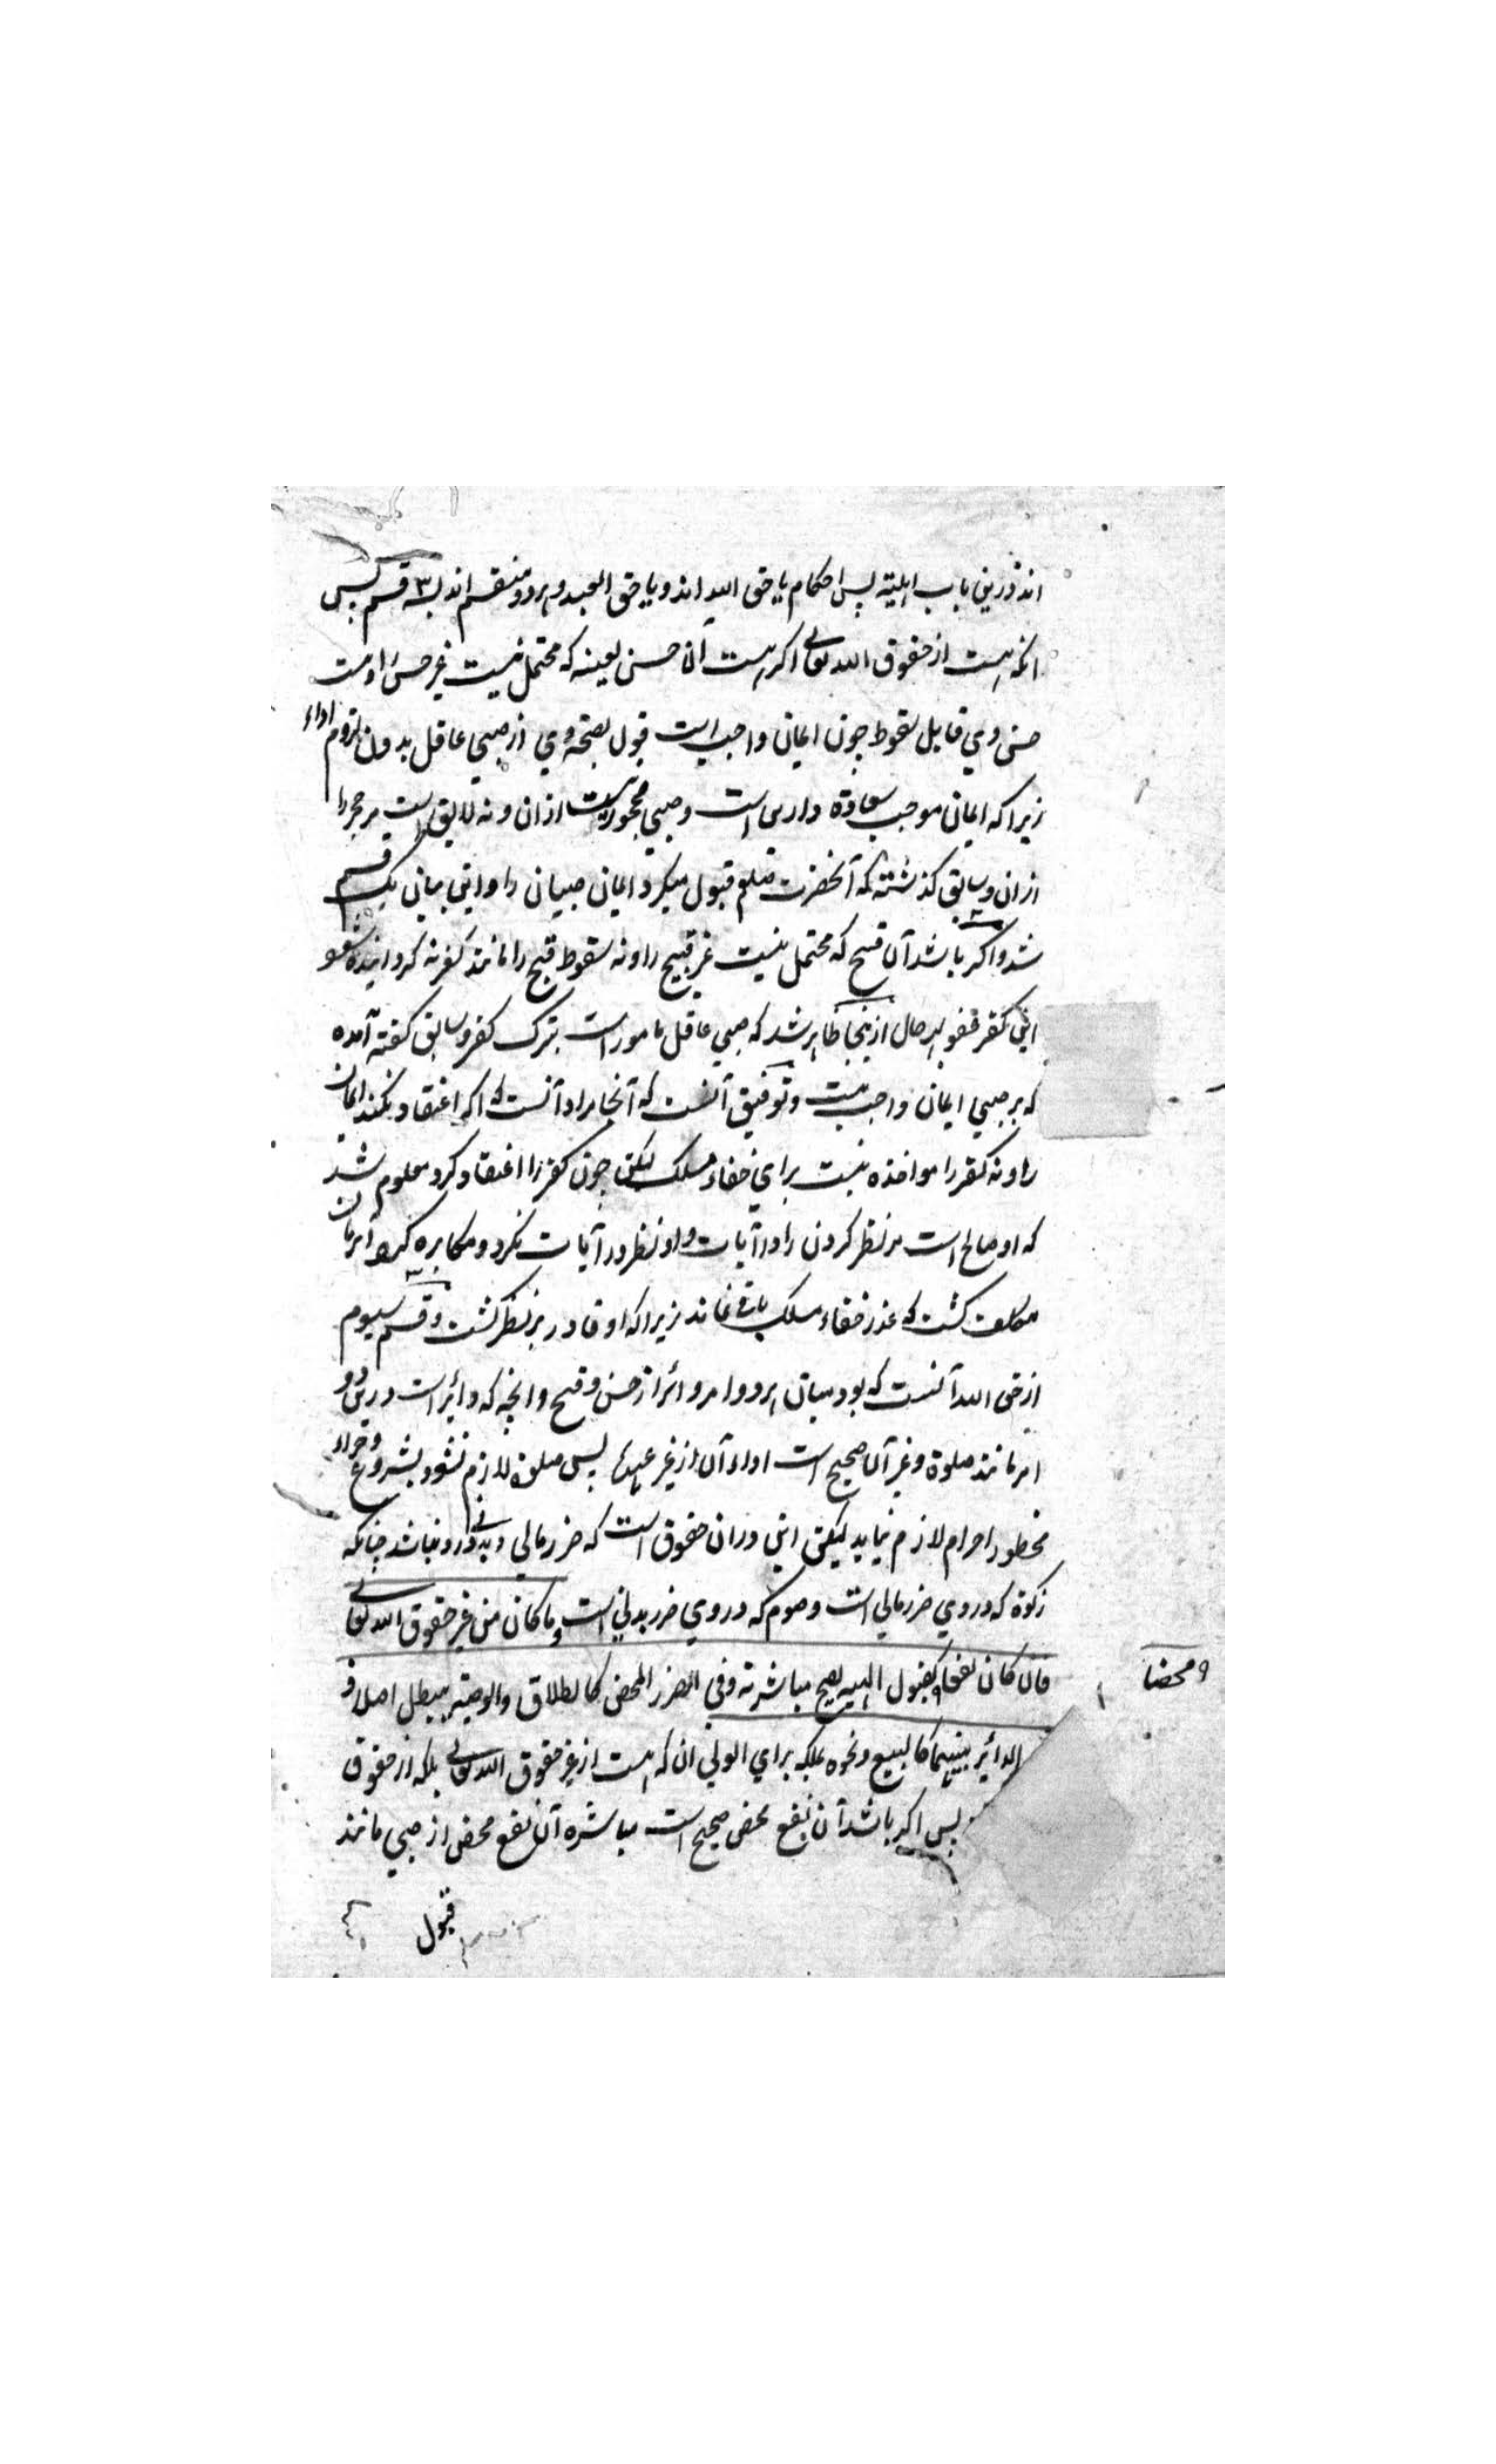 اند درین باب اهلیته پس احکام یا حق الله اند و یا حق العبد و هر دو منقسم اند بسه ۳ قسم پس
انکه هست از حقوق الله تعالی اکر هست آن حسن لعینه که محتمل نیست غیر حسن را و نیست
حسن وی قابل سقوط چون ایمان واجب است قول بصحة وی از صبی عاقل بدون لزوم اداء
زیرا که ایمان موجب سعادة دارین است و صبی محجور نیست ازان و نه لایق است مر حجر را
ازان و سابق کذشته که آنحضرت صلعم قبول میکرد ایمان صبیان را و این بیان یک قسم
شد و اکر باشد آن قبیح که محتمل نیست غیر قبیح را و نه سقوط قبح را مانند کفر نه کردانیده شود
این کفر عفو بهر حال ازینجا ظاهر شد که صبی عاقل مامور است بترک کفر و سابق کفته آمده
که بر صبی ایمان واجب نیست و توفیق آنست که آنجا مراد آنست که اکر اعتقاد نکند ایمان
را و نه کفر را مواخذه نیست برای خفاء مسلک لیکن چون کفر را اعتقاد کرد معلوم شد
که او صالح است مر نظر کردن را در آیات و او نظر در آیات نکرد و مکابره کرد آن زمان
مکلف کشت که عذر خفاء مسلک باقی نماند زیرا که او قادر بر نظر کشت و قسم سیوم
از حق الله آنست که بود میان هر دو امر دائر از حسن و قبح و انچه که دائر است درین دو
امر مانند صلوة و غیر آن صحیح است اداء آن از غیر عهدة پس صلوة لازم نشود بشروع و جزاء
محظور احرام لازم نیاید لیکن این دران حقوق است که ضرر مالی و بدنی درو نباشد چنانکه
زکوة که در وی ضرر مالی است و صوم که در وی ضرر بدنی است و ما کان من غیر حقوق الله تعالی
فان کان نفعا کقبول الهبه یصح مباشرته و فی الضرر المحض کالطلاق والوصیة یبطل اصلا و فی
محضا
الدائر بینهما کالبیع ونحوه یملکه برای الولی ان که هست از غیر حقوق الله تعالی بلکه از حقوق
پس اکر باشد آن نفع محض صحیح است مباشره آن نفع محض از صبی مانند
قبول